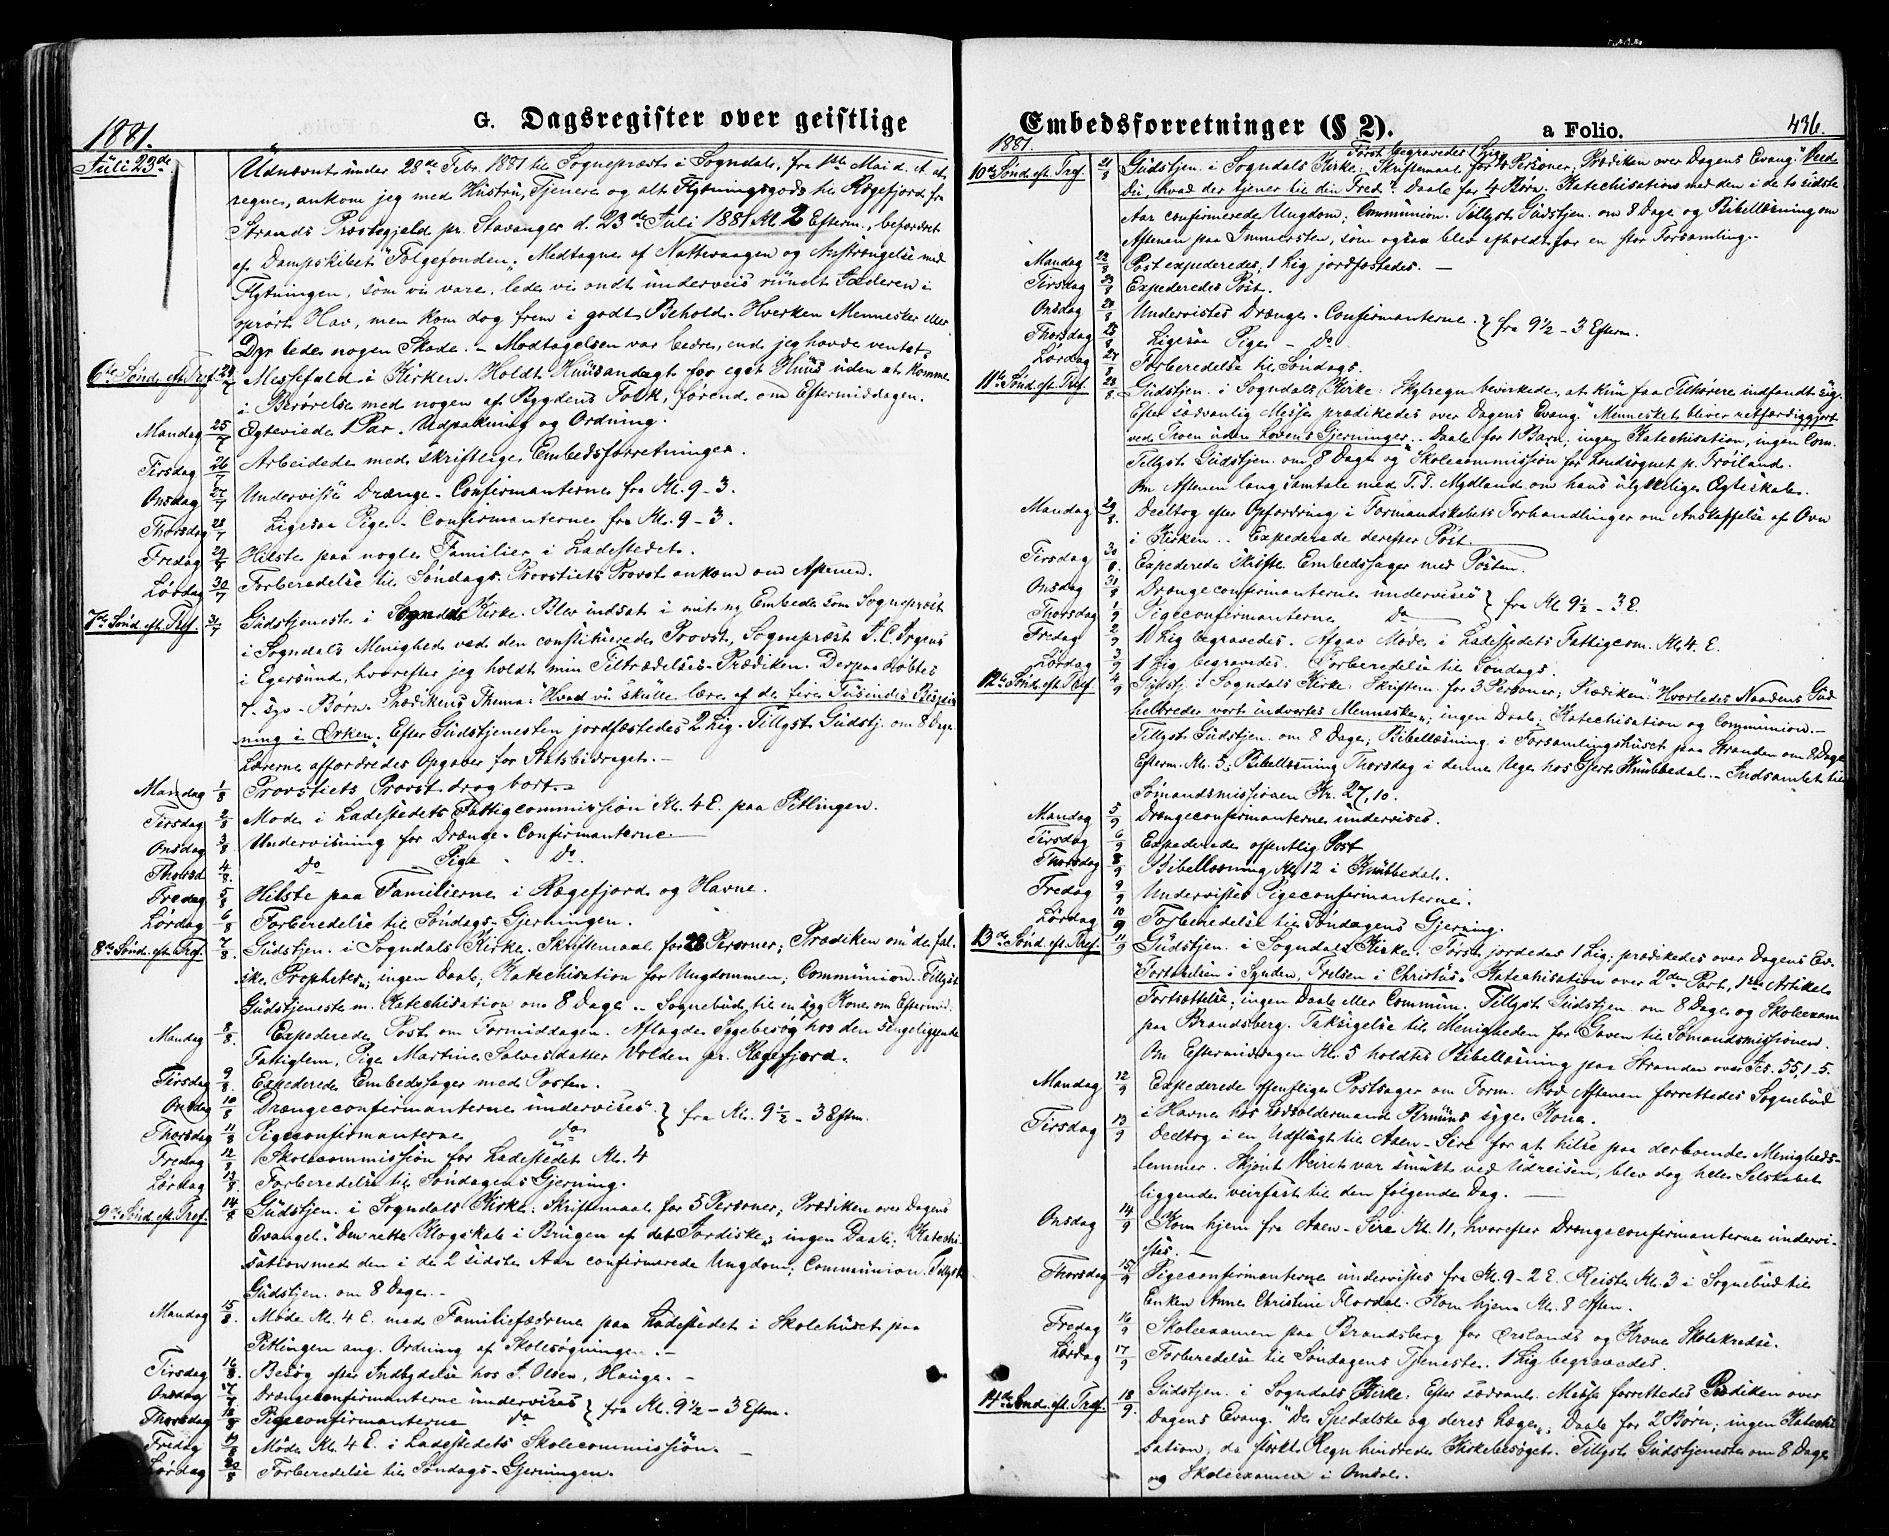 1881.
G. Dagsregister over geistlige
Juli 23de
Udnævnt under 28de Febr. 1881 til Sognepræst i Sogndal, fra 1ste Mai d. A. at
regne, ankom jeg med Hustru, Tjenere og alt Flytningsgods til Rægefjord, fra
Strands Præstegjeld pr. Stavanger d. 23de Juli 1881 Kl. 2 Efterm., befordret
af Dampskibet "Folgefonden". Medtagne af Nattevaagen og Anstrængelse med
Flytningen, som vi vare, lede vi ondt underveis rundt Jæderen i
oprørt Hav, men kom dog frem i godt Behold. Hverken Mennesker eller
Dyr lede nogen Skade. – Modtagelsen var bedre, end jeg havde ventet.
6te Sønd. eft. Tref. 24/7 Messefald i Kirken. Holdt Huusandagt for eget Huus uden at komme
i Berørelse med nogen af Bygdens Folk, førend om Eftermiddagen.
Mandag 25/7 Egteviede 1 Par. Udpakning og Ordning.
Tirsdag 26/7 Arbeidede med skriftlige Embedsforretninger.
Onsdag 27/7 Undervistes Drænge-Confirmanterne fra Kl. 9-3.
Thorsdag 28/7 Ligesaa Pige-Confirmanterne fra Kl. 9-3.
Fredag 29/7 Hilste paa nogle Familier i Ladestedet.
Lørdag 30/7 Forberedelse til Søndags. Provstiets Provst ankom om Aftenen.
7de Sønd. eft. Tref. 31/7 Gudstjeneste i Sogndals Kirke. Blev indsat i mit ny Embede som Sognepræst
i Sogndals Menighed ved den constituerede Provst, Sognepræst
i Egersund, hvorefter jeg holdt min Tiltrædelses-Prædiken. Derpaa døbtes
7 - syv - Børn. Prædikens Thema: "Hvad vi skulle lære af de fire Tusindes Bespis-
ning i Ørken". Efter Gudstjenesten jordfæstedes 2 Lig. Tillyst Gudstj. om 8 Dage.
Lærerne affordredes Opgaver for Statsbidraget. –
Mandag 1/8 Provstiets Provst drog bort. –
Tirsdag 2/8 Møde i Ladestedets Fattigcommission Kl. 4 E. paa Pitlingen.
Onsdag 3/8 Undervisning for Drænge-Confirmanterne. –
Thorsd. 4/8 Do Pige - Do
Fredag 5/8 Hilste paa Familierne i Rægefjord og Havne.
Lørdag 6/8 Forberedelse til Søndags-Gjerningen.
8de Sønd. eft. Tref. 7/8 Gudstjen. i Sogndals Kirke. Skriftemaal for 28 Personer; Prædiken om "de fal-
ske Propheter"; ingen Daab; Katechisation for Ungdommen; Communion. Tillyst
Gudstjeneste m. Katechisation om 8 Dage. – Sognebud til en syg Kone om Eftermid.
Mandag 8/8 Expederede Post om Formiddagen. Aflagde Sygebesøg hos den sengeliggende
Fattiglem, Pige Martine Salvesdatter Volden pr. Rægefjord.
Tirsdag 9/8 Expederede Embedssager med Posten.
Onsdag 10/8 Drængeconfirmanterne undervises } fra Kl. 9 ½ - 3 Eftm.
Thorsdag 11/8 Pigeconfirmanterne Do
Fredag 12/8 Skolecommission for Ladestedet Kl. 4
Lørdag 13/8 Forberedelse til Søndagens Gjerning.
9de Sønd. eft. Tref. 14/8 Gudstjen. i Sogndals Kirke. Skriftemaal for 5 Personer; Prædiken over Dagens
Evangel. "Den rette Klogskab i Brugen af det Jordiske"; ingen Daab; Katechi-
sation med den i de 2 sidste Aar confirmerede Ungdom; Communion. Tillyst
Gudstjen. om 8 Dage. –
Mandag 15/8 Møde Kl. 4 E. med Familiefædrene paa Ladestedet i Skolehuset paa
Pitlingen ang. Ordning af Skolesøgningen. –
Tirsdag 16/8 Besøg efter Indbydelse hos J. Olsen, Hauge. –
Onsdag 17/8 Drængeconfirmanterne undervises } fra Kl. 9 ½ - 3 Eftm.
Thorsdag 18/8 Pigeconfirmanterne Do
Fredag 19/8 Møde Kl. 4 E. i Ladestedets Skolecommission. –
Lørdag 20/8 Forberedelse til Søndags-Gjerningen.
Embedsforretninger (§ 2).
a Folio.
436.
1881.
Først begravedes 1 Lig
10de Sønd. eft. Tref. 21/8 Gudstjen. i Sogndals Kirke. Skriftemaal for 4 Personer; Prædiken over Dagens Evang.
"hvad der tjener til din Fred". Daab for 4 Børn. Katechisation med den i de to sidste
Aar confirmerede Ungdom; Communion. Tillyst Gudstjen. om 8 Dage og Bibellæsning om
Aftenen paa Immersten, som ogsaa blev afholdt for en stor Forsamling. –
Mandag 22/8 Post expederedes; 1 Lig jordfæstedes. –
Tirsdag 23/8 Expederedes Post.
Onsdag 24/8 Undervistes Drænge-Confirmanterne } fra 9 ½ - 3 Efterm.
Thorsdag 25/8 Ligesaa Pige - Do
Lørdag 27/8 Forberedelse til Søndags.
11te Sønd. eft. Tref. 28/8 Gudstjen. i Sogndals Kirke. Skylregn bevirkede, at kun faa Tilhørere indfandt sig.
Efter sædvanlig Messe prædikedes over Dagens Evang. "Mennesket bliver retfærdiggjort
ved Troen uden Lovens Gjerninger". Daab for 1 Barn, ingen Katechisation, ingen Com.
Tillyst Gudstjen. om 8 Dage og Skolecommission for Landsognet p. Trøiland.
Om Aftenen lang Samtale med T. T. Mydland om hans ulykkelige Ægteskab.
Mandag 29/8 Deeltog efter Opfordring i Formandskabets Forhandlinger om Anskaffelse af Ovn
i Kirken. – Expederede derefter Post.
Tirsdag 30/8 Expederede skriftl. Embedssager med Posten.
Onsdag 31/8 Drængeconfirmanterne undervises } fra Kl. 9 ½ - 3 E.
Thorsdag 1/9 Pigeconfirmanterne Do
Fredag 2/9 1 Lig begravedes. Afgav Møde i Ladestedets Fattigcom. Kl. 4 E.
Lørdag 3/9 1 Lig begravedes. Forberedelse til Søndags.
12te Sønd. eft. Tref. 4/9 Gudstj. i Sogndals Kirke. Skriftem. for 3 Personer; Prædiken "Hvorledes Naadens Gud
helbreder vort indvortes Menneske"; ingen Daab; Katechisation og Communion. –
Tillyst Gudstjen. om 8 Dage; Bibellæsning i Forsamlingshuset paa Stranden om 8 Dage
Efterm. Kl. 5; Bibellæsning Thorsdag i denne Uge hos Gjert Knubbedal. – Indsamlet til
Sømandsmissionen Kr. 27,10.
Mandag 5/9 Drængeconfirmanterne undervises.
Tirsdag 6/9 Expederede offentlig Post
Thorsdag 8/9 Bibellæsning Kl. 12 i Knubbedal.
Fredag 9/9 Undervistes Pigeconfirmanterne.
Lørdag 10/9 Forberedelse til Søndagens Gjerning.
13de Sønd. eft. Tref. 11/9 Gudstjen. i Sogndals Kirke. Først jordedes 1 Lig; prædikedes over Dagens Ev.
"Fortabelsen i Synden, Frelsen i Christus". Katechisation over 2den Part, 1ste Artikels
Fortsættelse; ingen Daab eller Commun. Tillyst Gudstjen. om 8 Dage og Skoleexam.
paa Brandsberg. Taksigelse til Menigheden for Gaven til Sømandsmissionen.
Om Eftermiddagen Kl. 5 holdtes Bibellæsning paa Stranden over Jes. 55, 1-5.
Mandag 12/9 Expederede offentlige Postsager om Form. Mod Aftenen forrettedes Sognebud
i Havne hos Losoldermand syge Kone.
Tirsdag 13/9 Deeltog i en Udflugt til Aaen-Sire for at hilse paa derboende Menigheds-
lemmer. Skjønt Veiret var smukt ved Udreisen, blev dog hele Selskabet
liggende veirfast til den følgende Dag. –
Onsdag 14/9 Kom hjem fra Aaen-Sire Kl. 11, hvorefter Drængeconfirmanterne undervi-
stes. –
Thorsdag 15/9 Pigeconfirmanterne undervistes fra Kl. 9-2 E. Reiste Kl. 3 i Sognebud til
Enken Anne Christine Flordal. Kom hjem Kl. 8 Aften.
Fredag 16/9 Skoleexamen paa Brandsberg for Ørslands og Krone Skolekredse.
Lørdag 17/9 Forberedelse til Søndagens Tjeneste. 1 Lig begravedes.
14de Sønd. eft. Tref. 18/9 Gudstjen. i Sogndals Kirke. Efter sædvanl. Messe forrettedes Prædiken over
Dagens Evang. "De Spedalske og deres Læge"; Daab for 2 Børn; ingen Katechi-
sation, da stærkt Regn hindrede Kirkebesøget. Tillyst Gudstjeneste om 8 Dage
og Skoleexamen i Omdal.